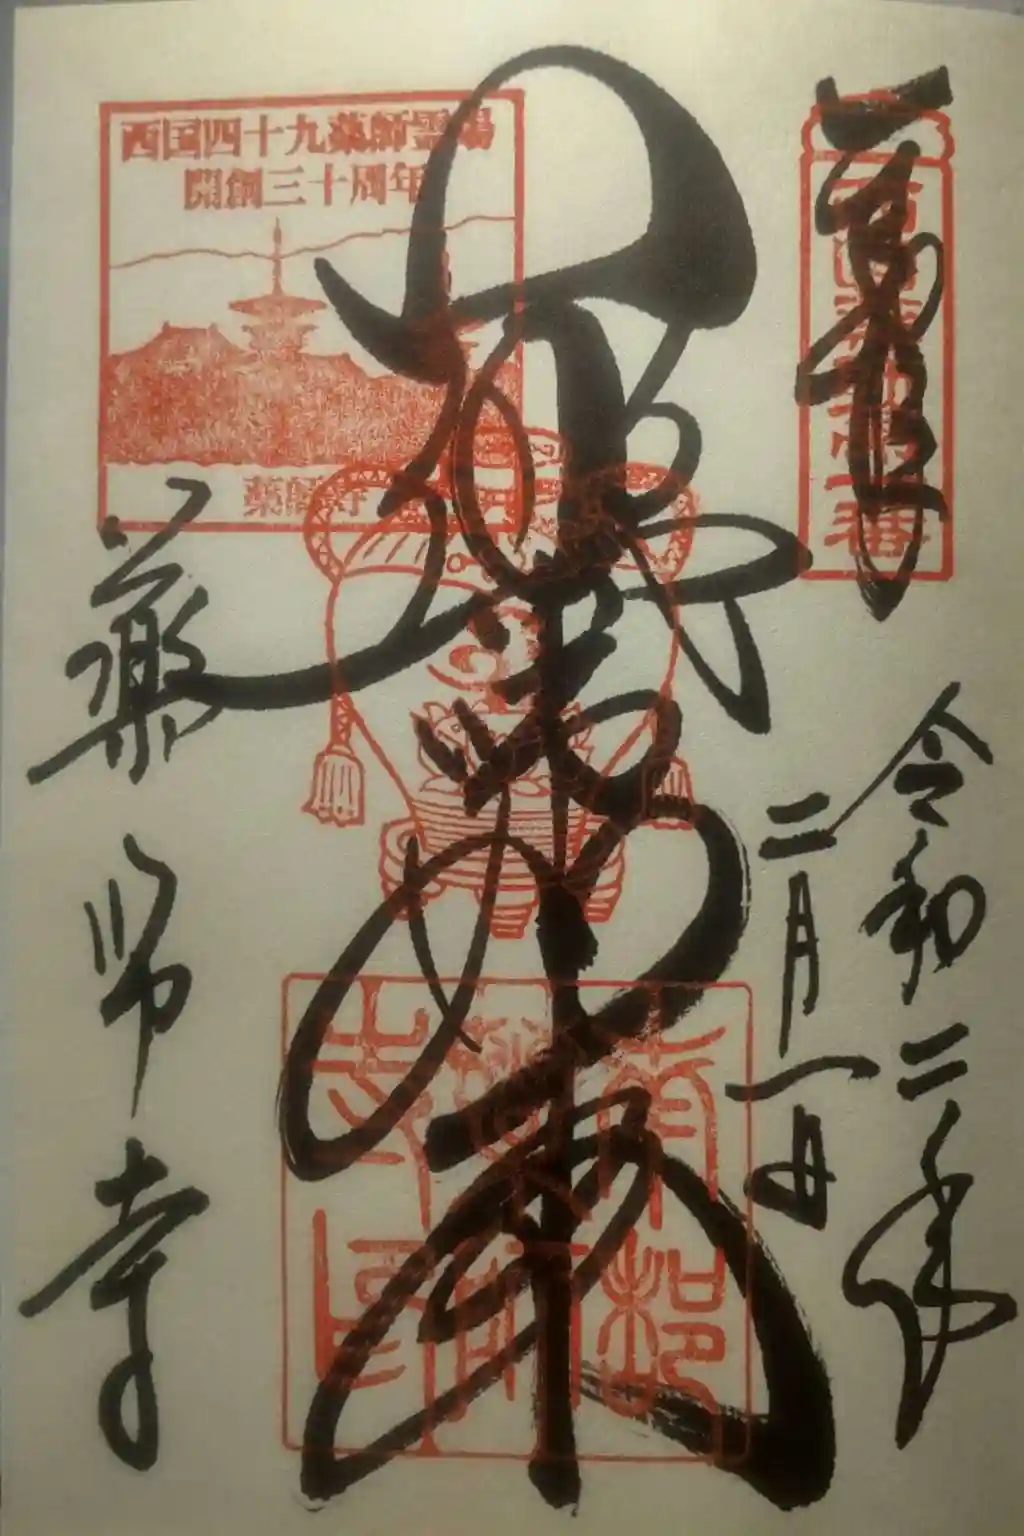 奉拝
西国薬師第一番
令和二年
二月一日
薬師如来
西国四十九薬師霊場
開創三十周年
薬師寺
薬師寺